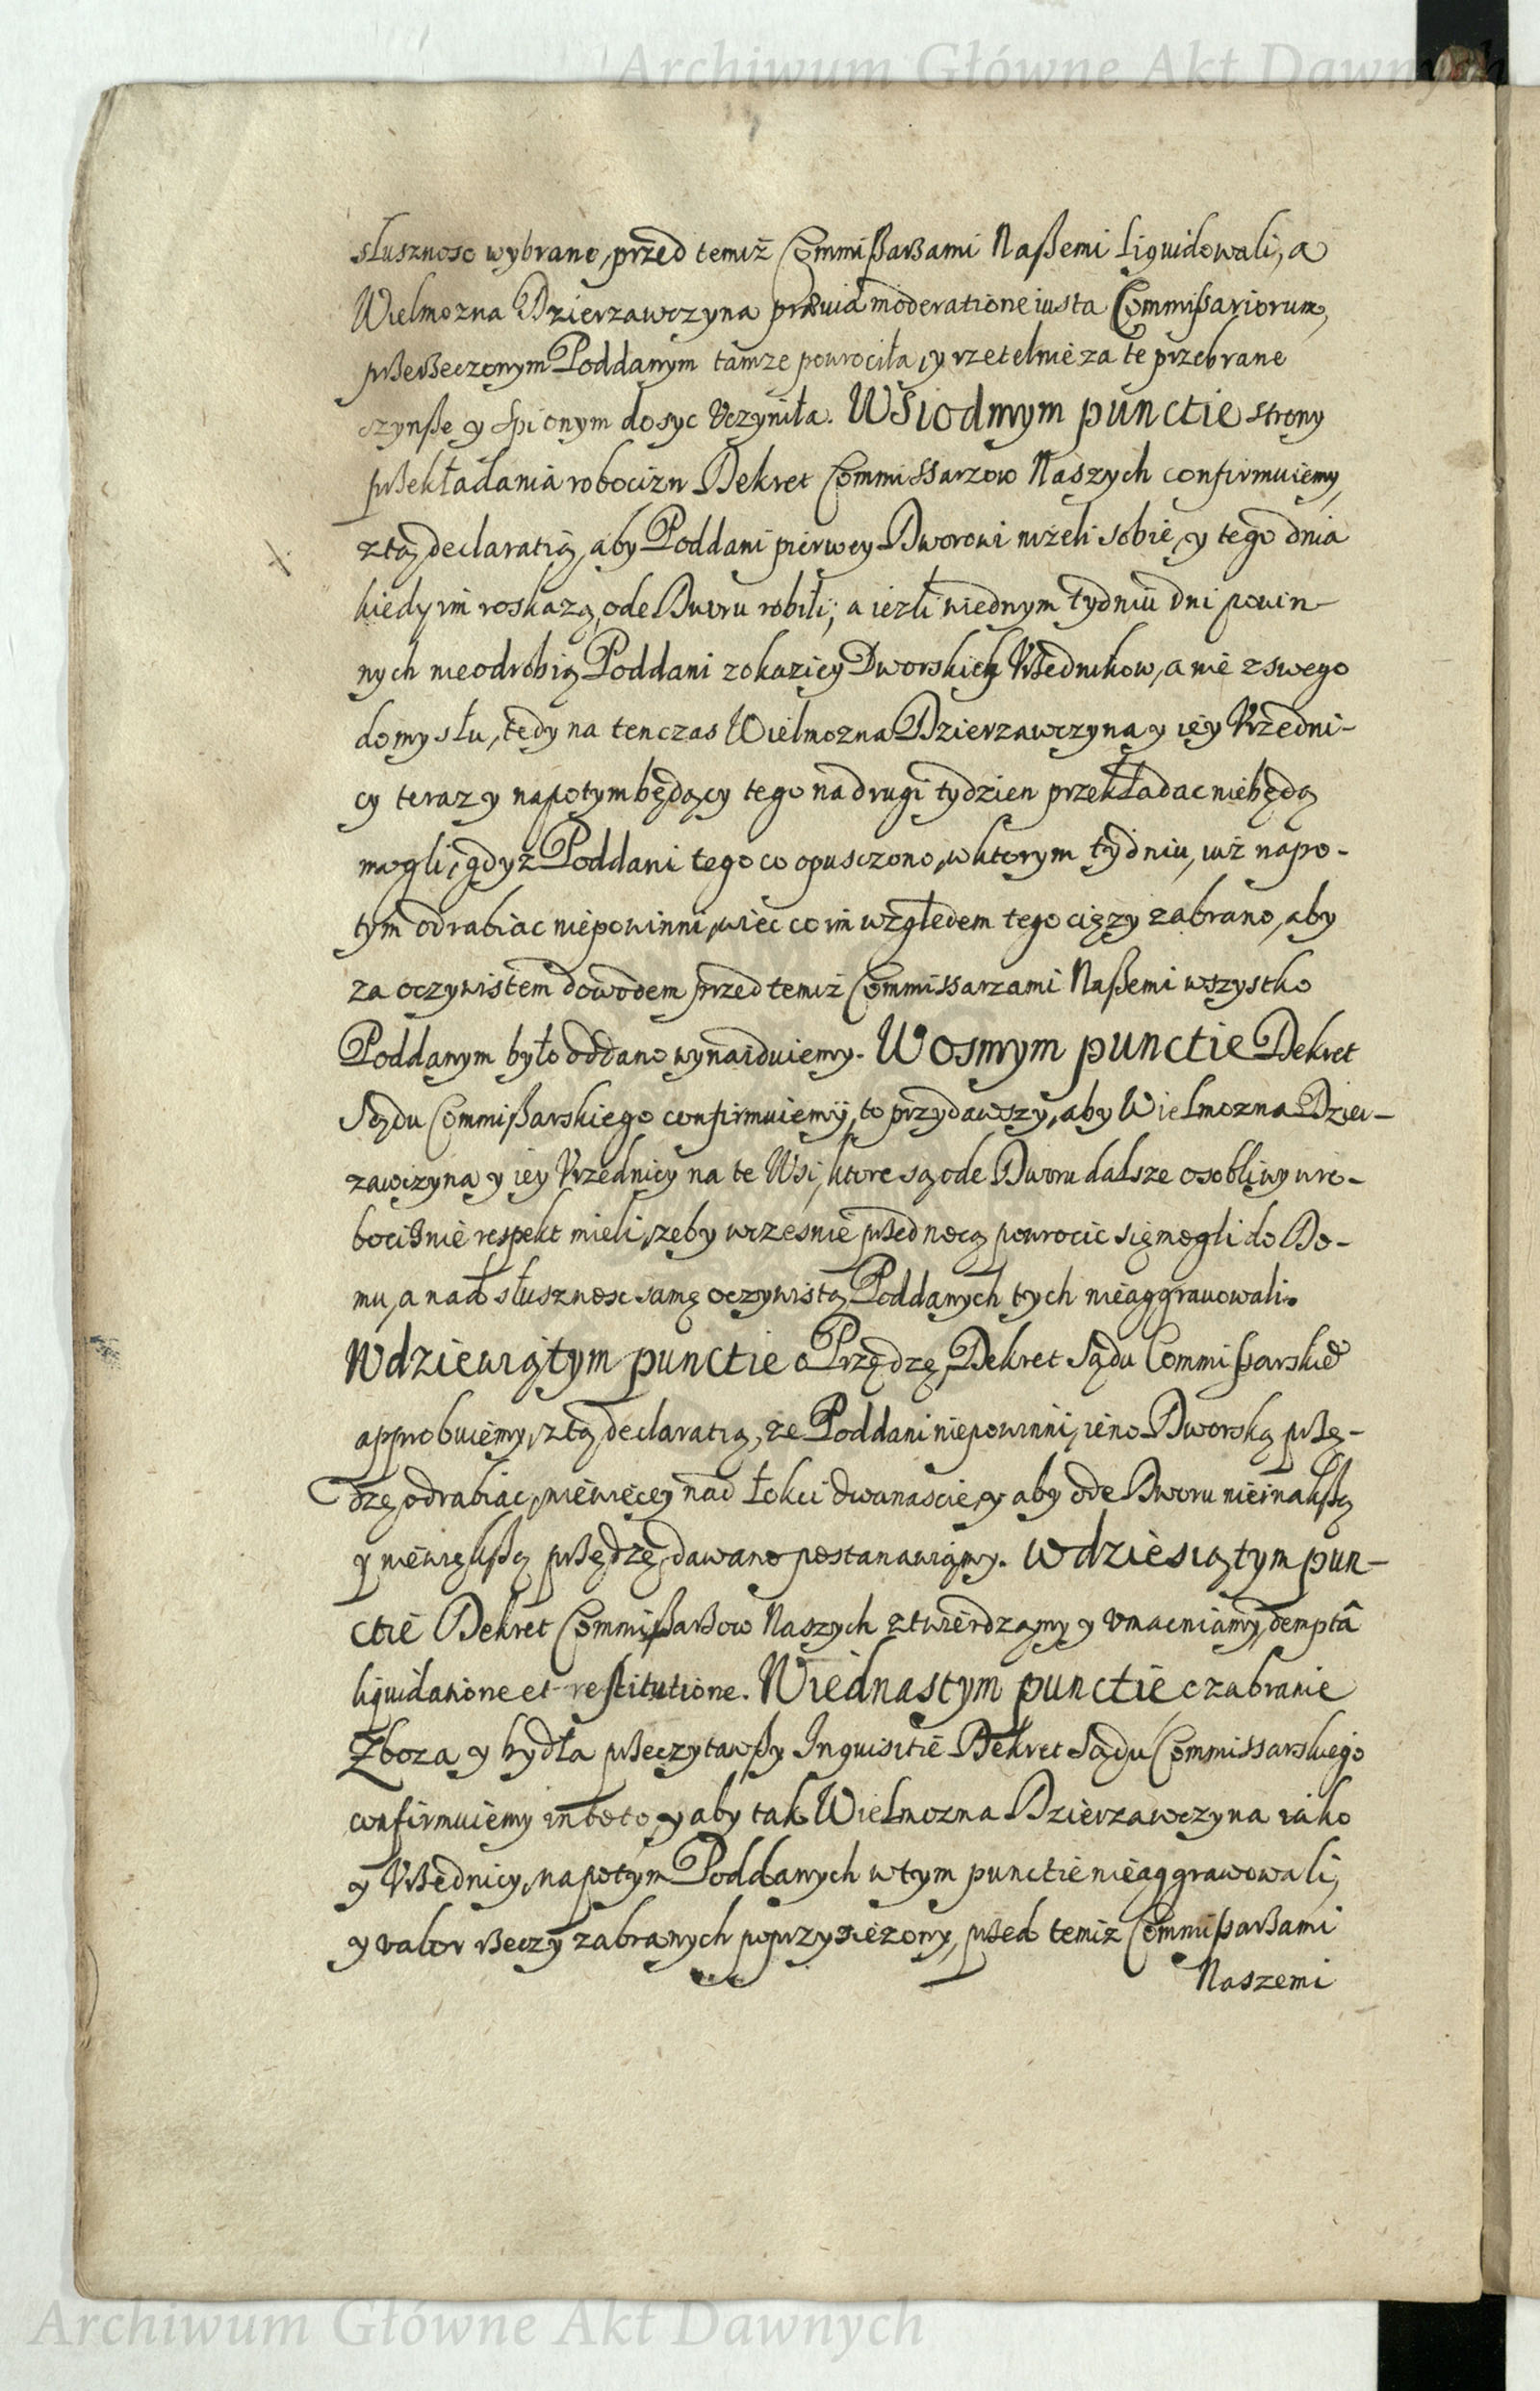 Archiwum Główne Akt Dawnych
słusznosc wybrano, przed temiż Commißarzami Naßemi liquidowali, a
Wielmozna Dzierzawczyna prævia moderatione iusta Commißariorum,
przerzeczonym Poddanym tamze powrociła, y rzetelnie za te przebrane
czynße y spionym dosyc Vczyniła. W Siodmym punctie strony
przekładania robocizn Dekret Commissarzow Naszych confirmuiemy,
z tą declaratią, aby Poddani pierwey Dworowi nizeli sobie, y tego dnia
kiedy im roskazą, ode Dworu robili; a iezli wiednym tydniu dni powin-
nych nieodrobią Poddani z okaziey Dworskich Vrzednikow, a nie z swego
domysłu, tedy na tenczas Wielmozna Dzierzawczyna y iey Vrzedni-
cy teraz y napotym będący tego na drugi tydzien przekładac niebędą
mogli, gdyż Poddani tego co opusczono, w ktorym tydniu, iuż napo-
tym odrabiac niepowinni, więc co im względem tego ciązy zabrano, aby
za oczywistem dowodem przed temiż Commissarzami Naßemi wszystko
Poddanym było oddano wynaiduiemy. W Osmym punctie Dekret
Sądu Commißarskiego confirmuiemy, to przydawszy, aby Wielmozna Dzier-
zawczyna y iey Vrzednicy na te Wsi, ktore są ode Dworu dalsze osobliwy w ro-
bociznie respekt mieli, zeby wczesnie przed nocą powrocic się mogli do Do-
mu, a nad słusznosc samę oczywistą Poddanych tych nieaggrawowali.
W dziewiątym punctie o Przędzę, Dekret Sądu Commißarskie°
approbuiemy, z tą declaratią, że Poddani niepowinni, ieno Dworską przę-
dzę odrabiac, niewięcey nad łokci dwanascie, y aby ode Dworu nieinakßą
y niewiękßą przędzę dawano postanawiamy. W dziesiątym pun-
ctie Dekret Commißarzow Naszych ztwierdzamy y vmacniamy, demptâ
liquidatione et restitutione. W iednastym punctie o zabranie
Zboza y bydła przeczytawßy Inquisitie Dekret Sądu Commissarskiego
confirmuiemy in toto, y aby tak Wielmozna Dzierzawczyna iáko
y Vrzednicy, napotym Poddanych w tym punctie nieaggrawowali,
y valor rzeczy zabranych poprzysiezony, przed temiz Commißarzami
Naszemi
Archiwum Główne Akt Dawnych